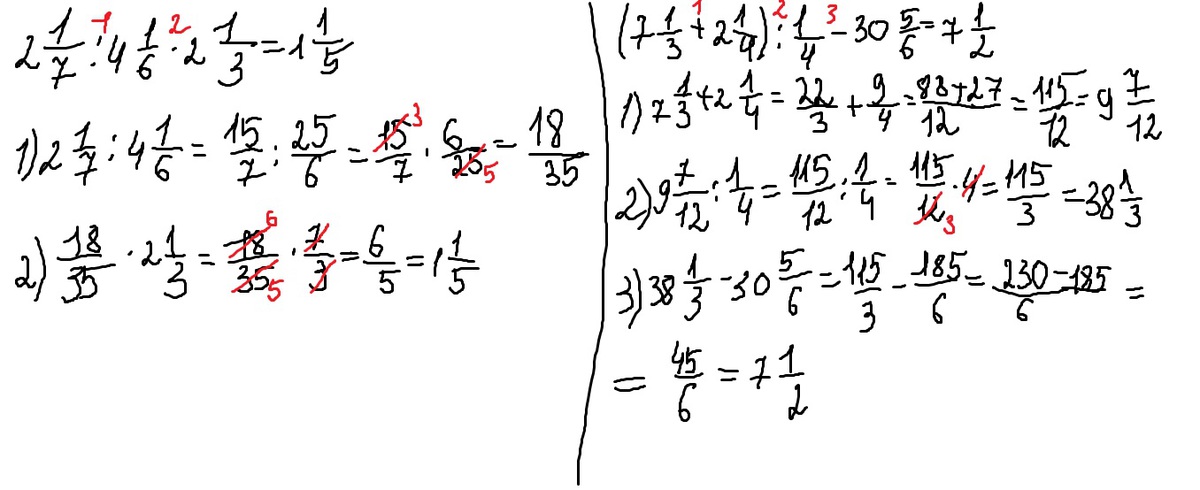 2 1/7 : 4 1/6 · 2 1/3 = 1 1/5
1) 2 1/7 : 4 1/6 = 15/7 : 25/6 = 15/7 · 6/25 = 18/35
2) 18/35 · 2 1/3 = 18/35 · 7/3 = 6/5 = 1 1/5
(7 1/3 + 2 1/4) : 1/4 - 30 5/6 = 7 1/2
1) 7 1/3 + 2 1/4 = 22/3 + 9/4 = 88+27/12 = 115/12 = 9 7/12
2) 9 7/12 : 1/4 = 115/12 : 1/4 = 115/12 · 4 = 115/3 = 38 1/3
3) 38 1/3 - 30 5/6 = 115/3 - 185/6 = 230-185/6 =
= 45/6 = 7 1/2